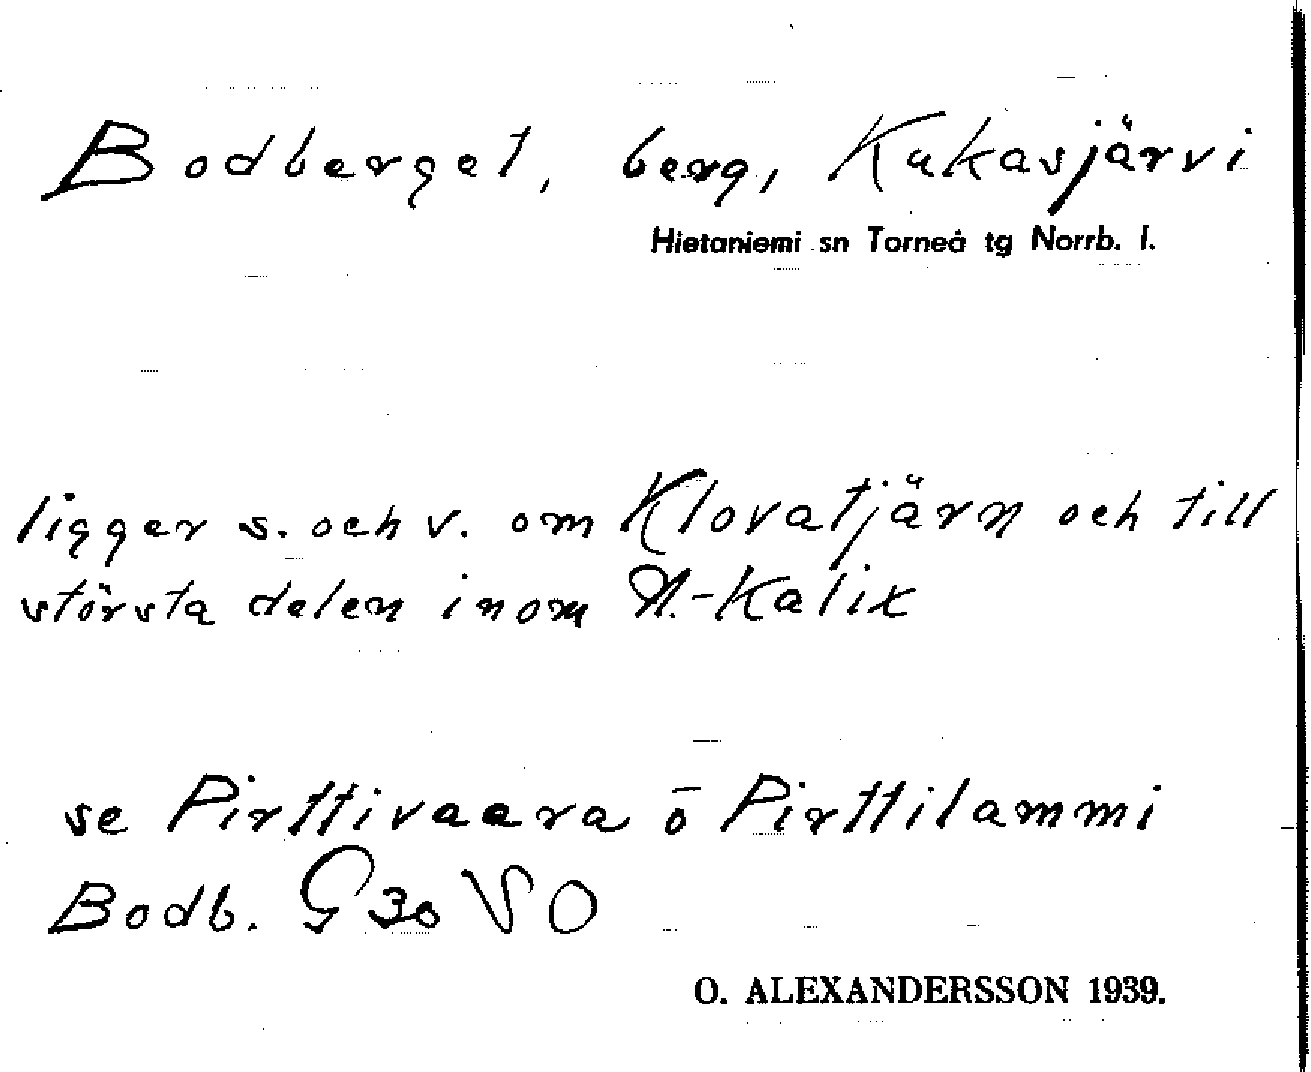 Bodberget, berg, Kukasjärvi
Hietaniemi sn Torneå tg Norrb. l.
ligger s. och v. om Klovatjärn och till
största delen inom N.-Kalix
se Pirttivaara o Pirttilammi
Bodb. G 30 VO
O. ALEXANDERSSON 1939.